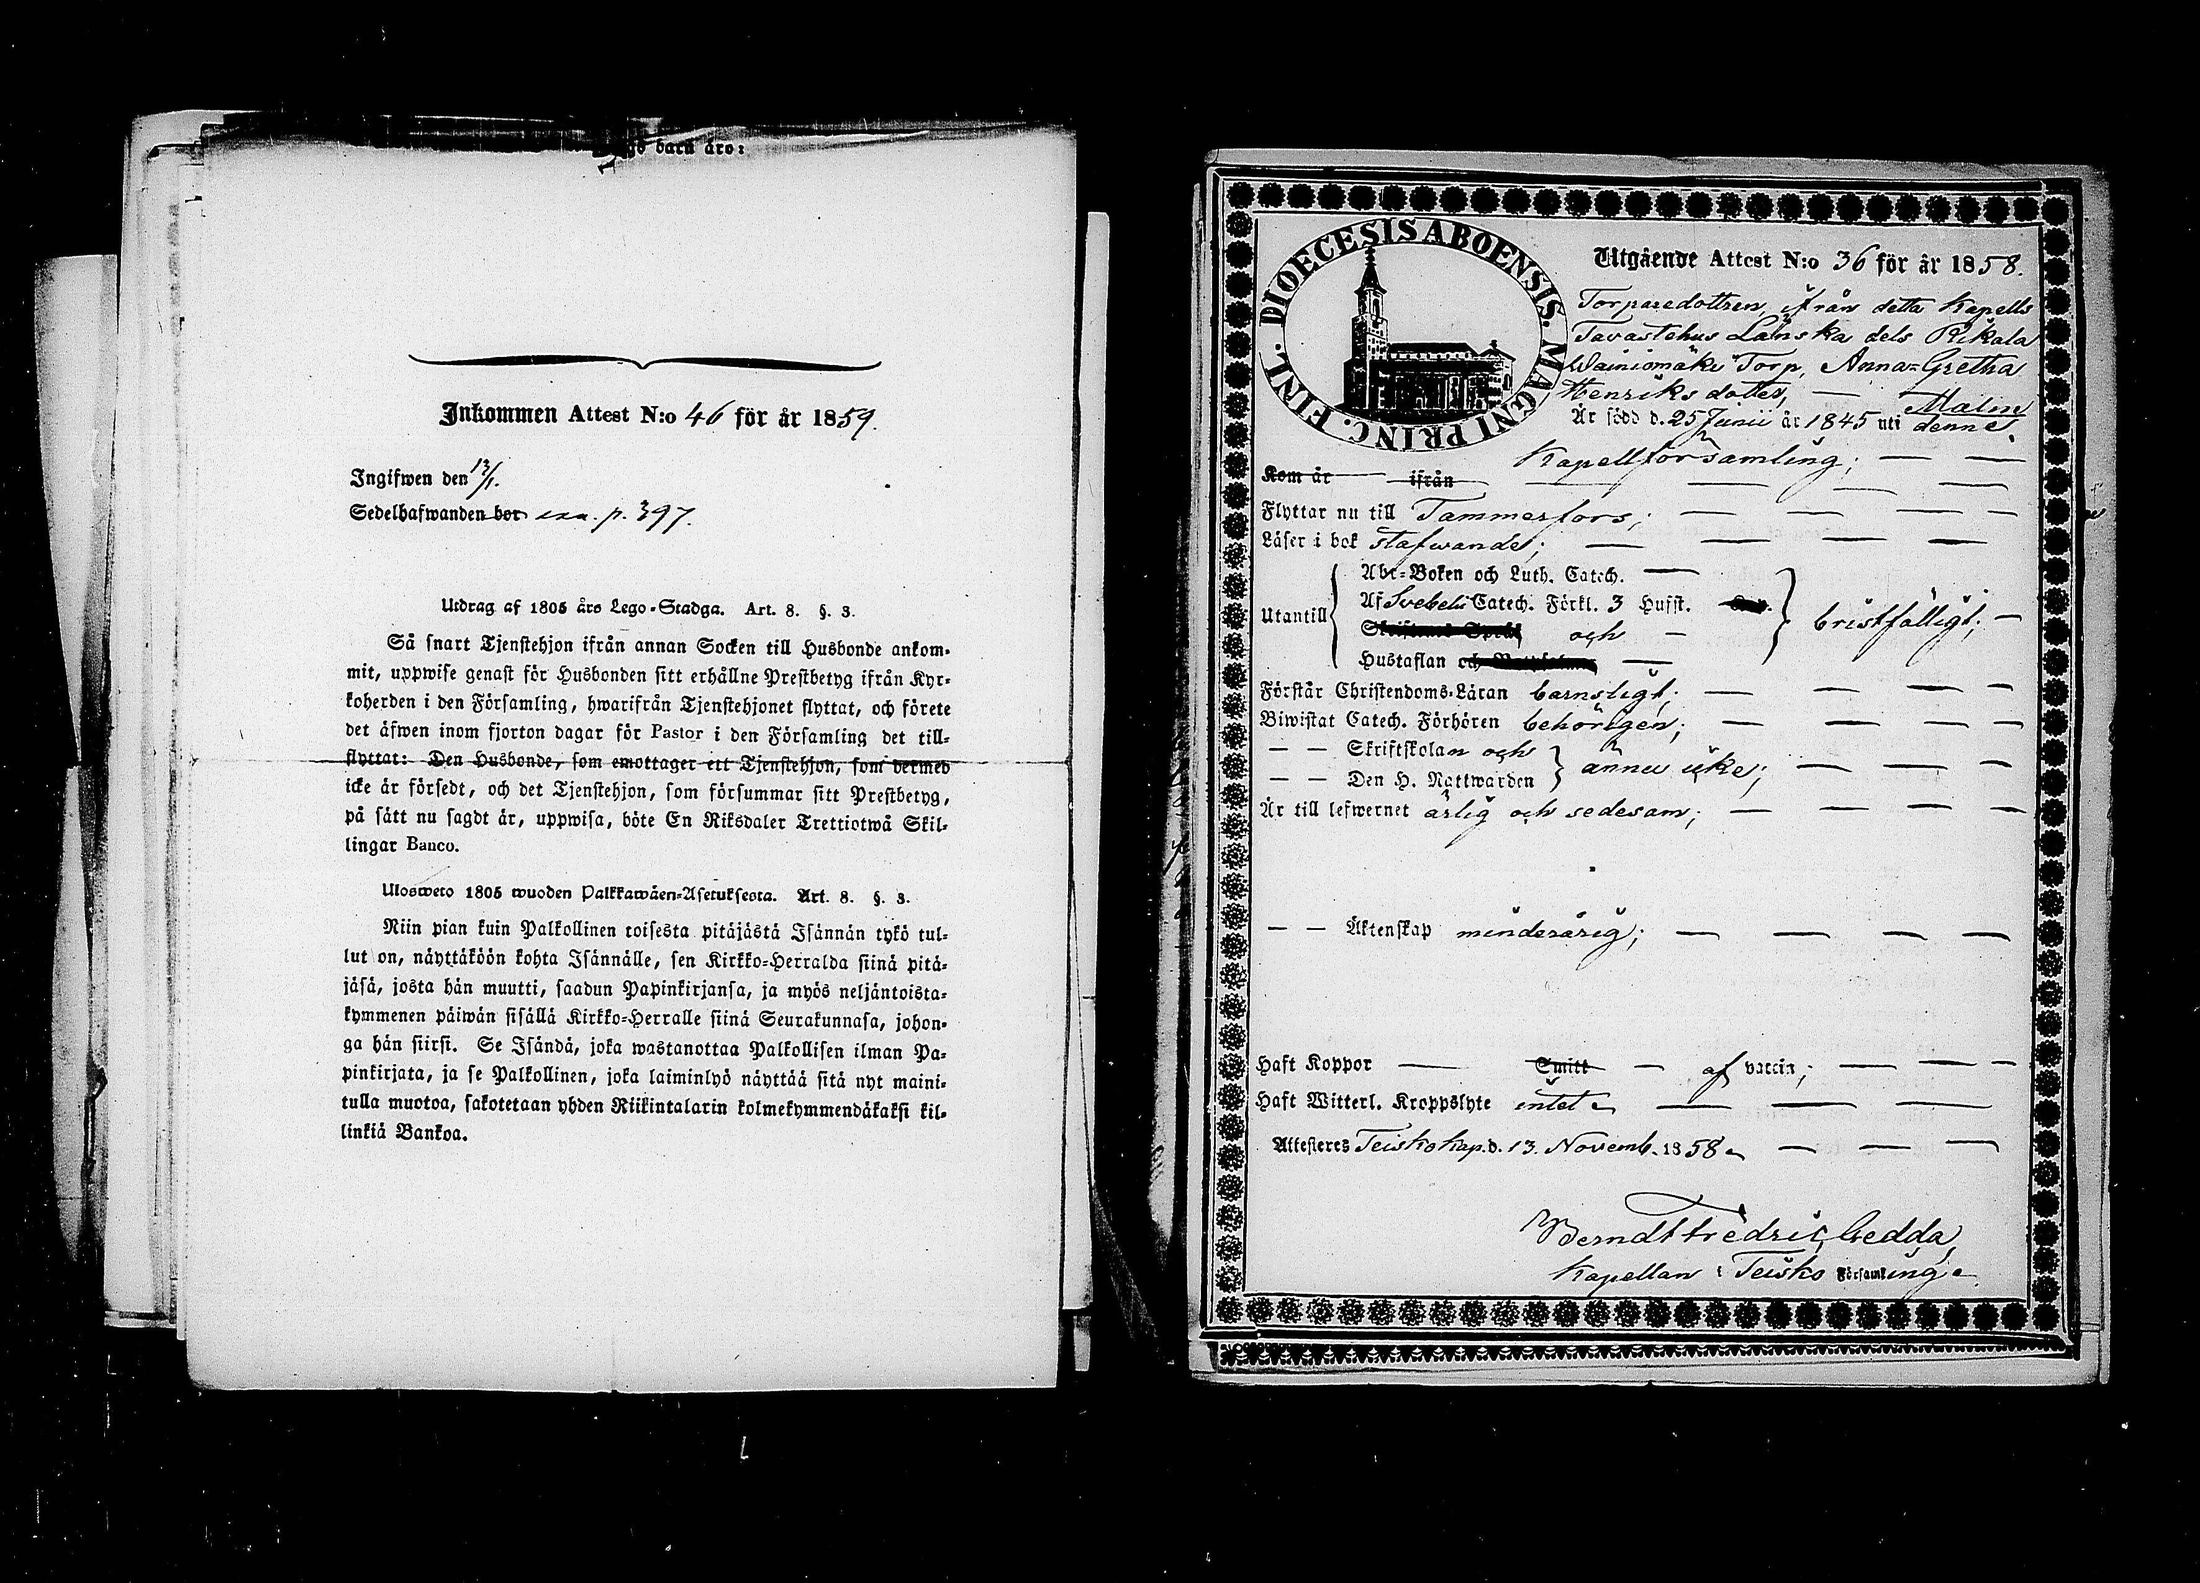 bara äro:
Inkommen Attest N:o 46 för år 1859.
Ingifwen den 13/1.
Sedelhafwanden bor exa. p. 397.
Utdrag af 1805 års Lego-Stadga. Art. 8. §. 3.
Så snart Tjenstehjon ifrån annan Socken till Husbonde ankom-
mit, uppwise genast för Husbonden sitt erhållne Prestbetyg ifrån Kyr-
koherden i den Församling, hwarifrån Tjenstehjonet flyttat, och förete
det äfwen inom fjorton dagar för Pastor i den Församling det till-
flyttat: Den Husbonde, som emottager ett Tjenstehjon, som dermed
icke är försedt, och det Tjenstehjon, som försummar sitt Prestbetyg,
på sätt nu sagdt är, uppwisa, böte En Riksdaler Trettiotwå Skil-
lingar Banco.
Ulosweto 1805 wuoden Palkkawäen-Asetuksesta. Art. 8. §. 3.
Niin pian kuin Palkollinen toisesta pitäjästä Isännän tykö tul-
lut on, näyttäköön kohta Isännälle, sen Kirkko-Herralda siinä pitä-
jäsä, josta hän muutti, saadun Papinkirjansa, ja myös neljäntoista-
kymmenen päiwän sisällä Kirkko-Herralle siinä Seurakunnasa, johon-
ga hän siirsi. Se Isändä, joka wastanottaa Palkollisen ilman Pa-
pinkirjata, ja se Palkollinen, joka laiminlyö näyttää sitä nyt maini-
tulla muotoa, sakotetaan yhden Riikintalarin kolmekymmendäkaksi kil-
linkiä Bankoa.
DIOECESIS ABOENSIS. MAGNI PRINC. FINL.
Utgående Attest N:o 36 för år 1858.
Torparedottren, ifrån detta Kapells
Tavastehus Länska dels Rikala
Wainiomäki Torp, Anna-Gretha
Henriks dotter, — Malin
Är född d. 25 Junii år 1845 uti denne
Kapellförsamling; — —
Kom år — ifrån — — — —
Flyttar nu till Tammerfors; — — — —
Läser i bok stafwande; — — — —
Utantill
Abc-Boken och Luth. Catech. —
Af Svebelii Catech. Förkl. 3 Hufst.
Skriftenes Språk och —
Hustaflan och —
bristfälligt; —
Förstår Christendoms-Läran barnsligt; — — — —
Biwistat Catech. Förhören behörigen; — — — —
— — Skriftskolan och
— — Den H. Nattwarden
ännu icke; — — —
Är till lefwernet ärlig och sedesam; — — — —
— — Äktenskap minderårig; — — — —
Haft Koppor — Smitt — af vaccin; — — —
Haft Witterl. Kroppslyte intet — — —
Attesteres Teisko Kap. d. 13. Novemb. 1858 — — —
Berndt Fredric Gedda,
Kapellan i Teisko Församling